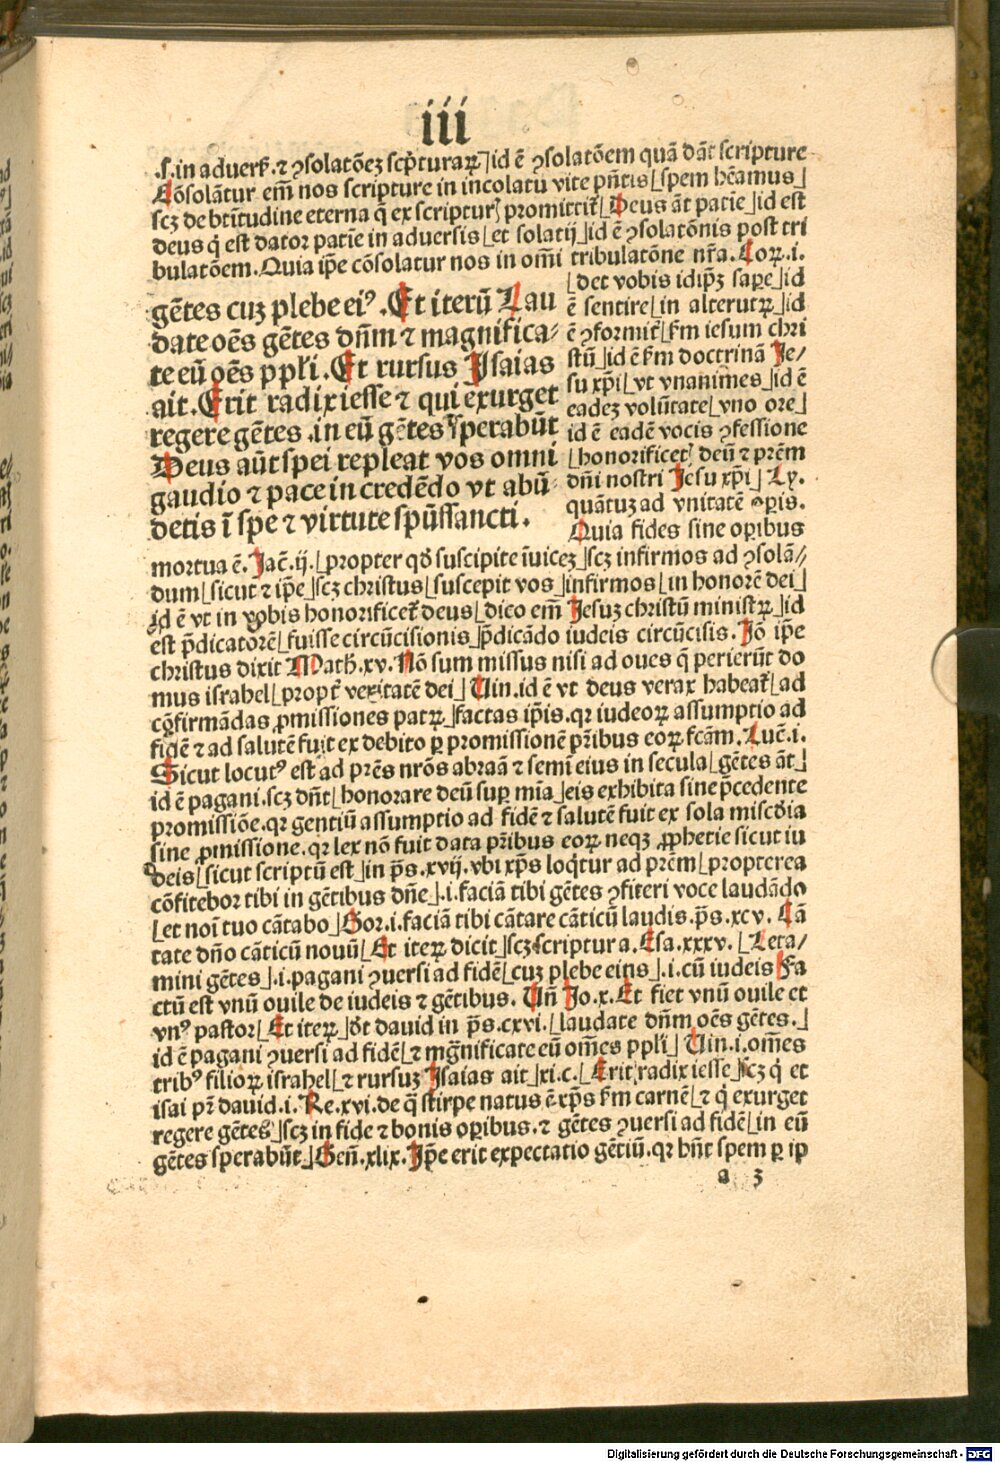 iii
.ſ. in aduerẜ. ⁊ ꝯſolatōeꝫ ſcp̄turaꝝ⌋ id ē ꝯſolatōem quā dāt ſcripture
Cōſolātur em̄ nos ſcripture in incolatu vite pn̄tis⌊ſpem hēamus⌋
ſcꝫ de btītudine eterna q̄ ex ſcriptur promittit̄⌊Deus āt patīe⌋id eſt
deus q̄ eſt dator patīe in aduerſis⌊et ſolatij⌋id ē ꝯſolatōnis poſt tri
bulatōem. Quia ip̄e cōſolatur nos in om̄i tribulatōne nr̄a. Coꝝ. i.
gētes cuꝫ plebe eiꝰ. Et iterū Lau
date oēs gētes dn̄m ⁊ magnifica⸗
te eū oēs ppl̄i. Et rurſus Iſaias
ait. Erit radix ieſſe ⁊ qui exurget
regere gētes .in eū gētes ſperabūt
Deus aūt ſpei repleat vos omni
gaudio ⁊ pace in credēdo vt abū⸗
detis ī ſpe ⁊ virtute ſpūſſancti.
⌊det vobis idip̄ꝫ ſaꝑe⌋id
ē ſentire⌊in alterutꝝ⌋id
ē ꝯformit̄⌊ẜm ieſum chri
ſtū⌋id ē ẜm doctrinā Je/
ſu xp̄i⌊vt vnanimes⌋id ē
eadeꝫ volūtate⌊vno ore⌋
id ē eadē vocis ꝯfeſſione
⌊honorificet deū ⁊ prēm
dn̄i noſtri Jeſu xp̄i⌋ Ly.
quātuꝫ ad vnitatē oꝑis.
Quia fides ſine oꝑibus
mortua ē. Jac̄. ij.⌊propter qd̄ ſuſcipite īuiceꝫ⌋ſcꝫ infirmos ad ꝯſolā⸗
dum⌊ſicut ⁊ ip̄e⌋ſcꝫ chriſtus⌊ſuſcepit vos⌋infirmos⌊in honorē dei⌋
id ē vt in vobis honorificet̄ deus⌊dico em̄ Jeſuꝫ chriſtū miniſtꝝ⌋id
eſt p̄dicatorē⌊fuiſſe circūciſionis⌋p̄dicādo iudeis circūciſis. Jō ip̄e
chriſtus dixit Math̄. xv. Nō ſum miſſus niſi ad oues q̄ perierūt do
mus iſrahel⌊propt̄ veritatē dei⌋ Uin. id ē vt deus verax habeat̄⌊ad
cōfirmādas ꝓmiſſiones patꝝ⌋factas ip̄is. qꝛ iudeoꝝ aſſumptio ad
fidē ⁊ ad ſalutē fuit ex debito ꝑ promiſſionē pr̄ibus eoꝝ fcām. Luc̄. i.
Sicut locutꝰ eſt ad prēs nrōs abraā ⁊ ſemī eius in ſecula⌊gētes āt⌋
id ē pagani. ſcꝫ dn̄t⌊honorare deū ſuꝑ mīa⌋eis exhibita ſine p̄cedente
promiſſiōe. qꝛ gentiū aſſumptio ad fidē ⁊ ſalutē fuit ex ſola miſcd̄ia
ſine ꝓmiſſione. qꝛ lex nō fuit data pr̄ibus eoꝝ neqꝫ ꝓphetie ſicut iu
deis⌊ſicut ſcriptū eſt⌋in p̄s. xvij. vbi xp̄s loq̄tur ad prēm⌊propterea
cōfitebor tibi in gētibus dn̄e⌋.i. faciā tibi gētes ꝯfiteri voce laudādo
⌊et noī tuo cātabo⌋Gor. i. faciā tibi cātare cāticū laudis. p̄s. xcv. Cā
tate dn̄o cāticū nouū⌊Et iteꝝ dicit⌋ſcꝫ ſcriptura. Eſa. xxxv.⌊Leta/
mini gētes⌋.i. pagani ꝯuerſi ad fidē⌊cuꝫ plebe eius⌋.i. cū iudeis Fa
ctū eſt vnū ouile de iudeis ⁊ gētibus. Un̄ Jo. x. Et fiet vnū ouile et
vnꝰ paſtor⌊Et iteꝝ⌋dt̄ dauid in p̄s. cxvi.⌊laudate dn̄m oēs gētes.⌋
id ē pagani ꝯuerſi ad fidē⌊⁊ mḡnificate eū om̄es ppl̄i⌋ Uin. i. om̄es
tribꝰ filioꝝ iſrahel⌊⁊ rurſuꝫ Iſaias ait⌋xi. c.⌊Erit radix ieſſe⌋ſcꝫ q̄ et
iſai pr̄ dauid. i. Re. xvi. de q̄ ſtirpe natus ē xp̄s ẜm carnē⌊⁊ q̄ exurget
regere gētes⌋ſcꝫ in fide ⁊ bonis oꝑibus. ⁊ gētes ꝯuerſi ad fidē⌊in eū
gētes ſperabūt⌋Gen̄. xlix. Ip̄e erit expectatio gētiū. qꝛ hn̄t ſpem ꝑ ip
a 3
Digitalisierung gefördert durch die Deutsche Forschungsgemeinschaft - DFG